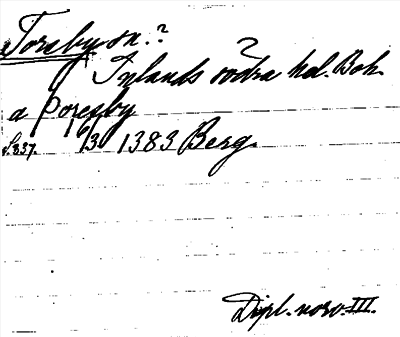 Torsby sn.?
Inlands södra hd. Boh.
a Þoresby
S. 337. 16/3 1383 Berg.
Dipl. norv. III.